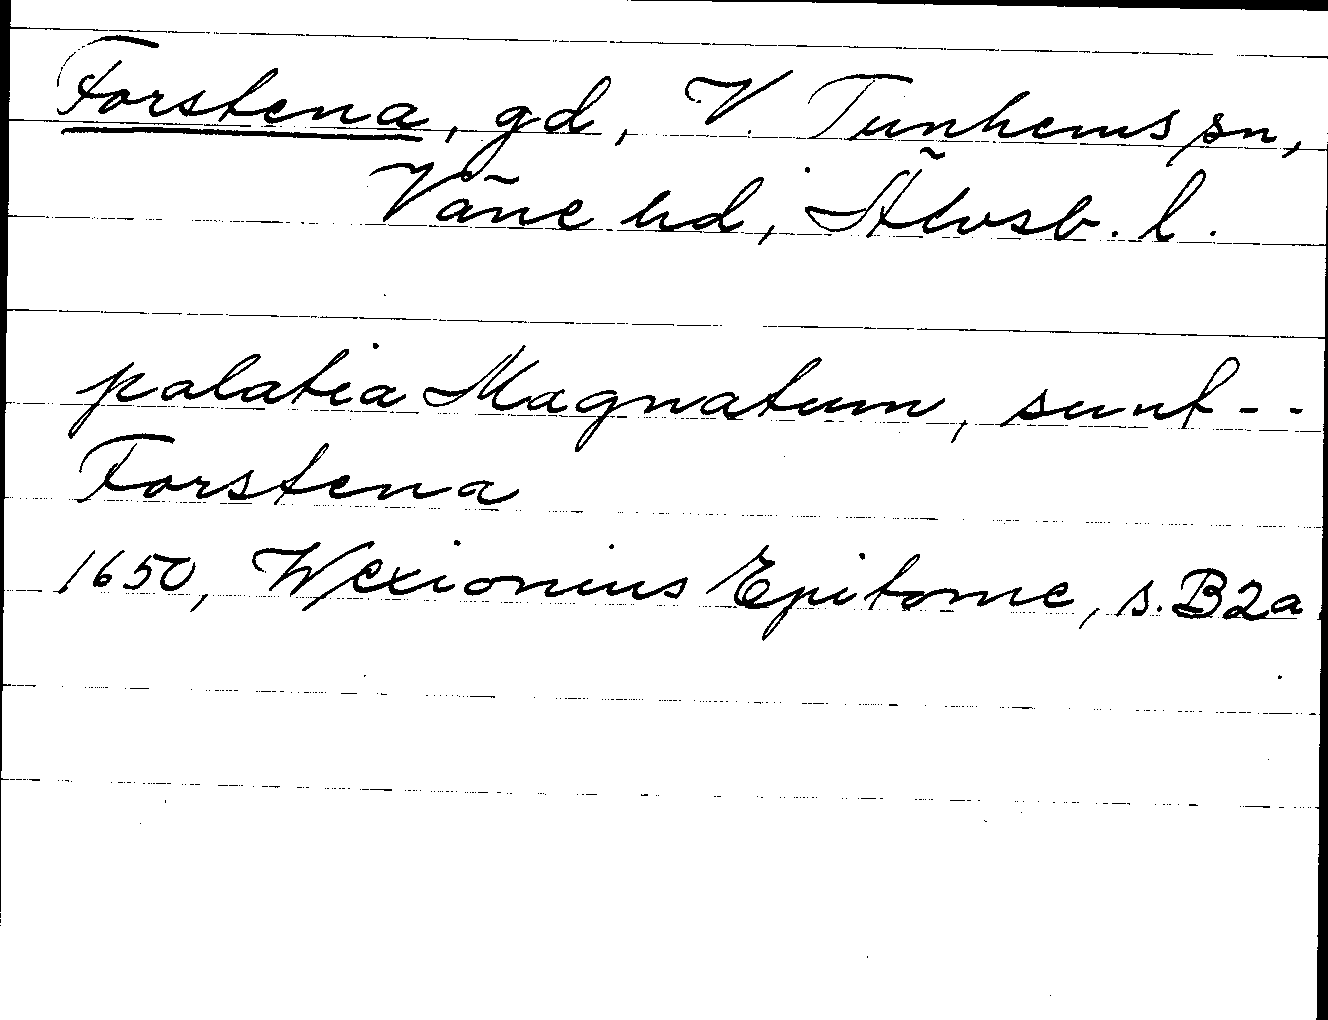 Forstena, gd, V. Tunhems sn,
Väne hd, Älvsb. l.
palatia Magnatum, sunt - -
Forstena
1650, Wexionius Epitome, s. B2a.